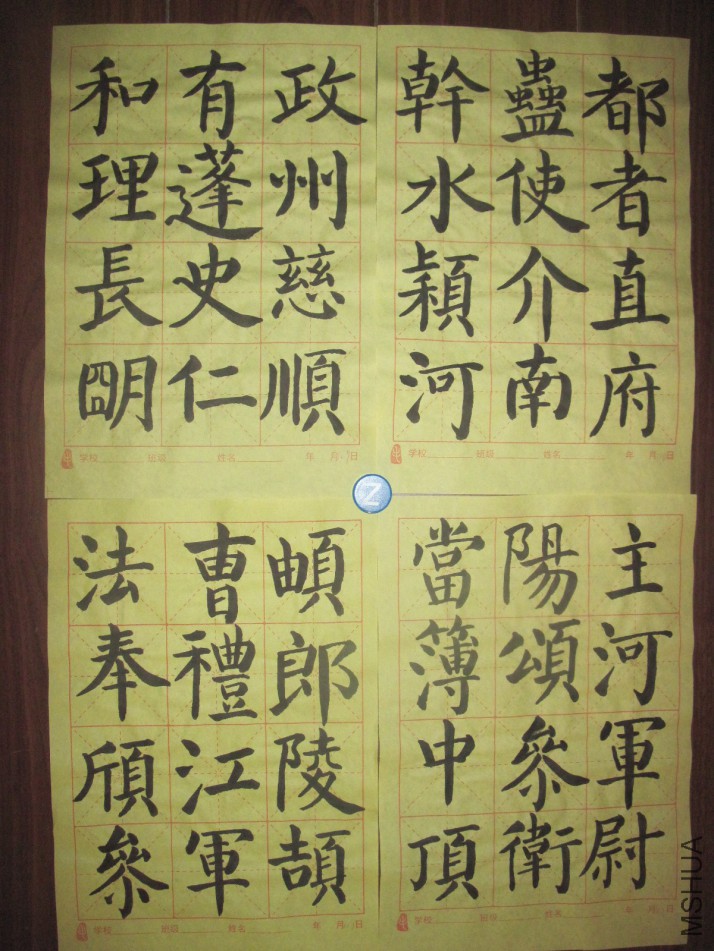 都者直府
蠱使介南
幹水穎河
学校 班级 姓名 年 月 日
政州慈順
有蓬史仁
和理長朙
学校 班级 姓名 年 月 日
主河軍尉
陽頌參衛
當簿中頂
学校 班级 姓名 年 月 日
頔郎陵頡
曹禮江軍
法奉頎參
学校 班级 姓名 年 月 日
Z
MSHUA